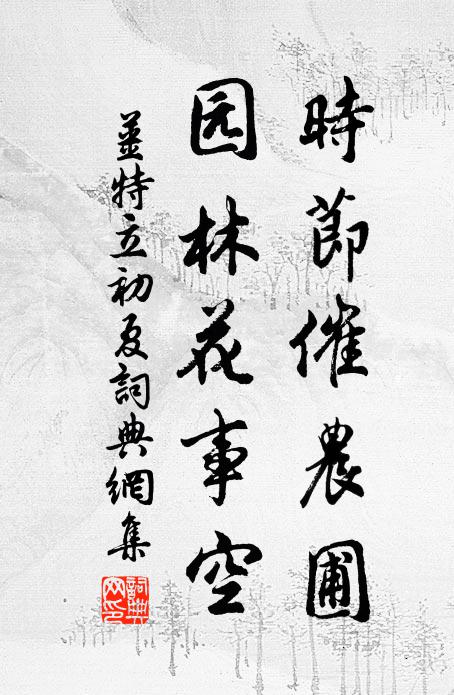 時節催農圃
园林花事空
姜特立初夏詞典網集
詞典網印